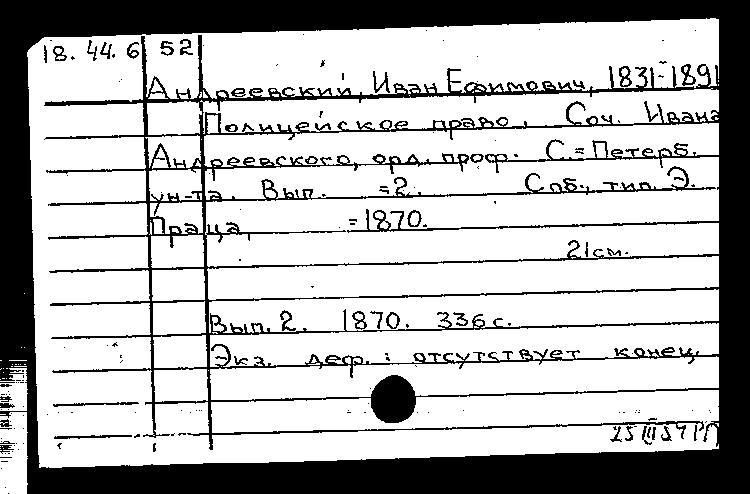 18. 44. 6 52
Андреевский, Иван Ефимович, 1831-1891
Полицейское право. Соч. Ивана
Андреевского, орд. проф. С.=Петерб.
ун-та. Вып. =2. Спб., тип. Э.
Праца, =1870.
21см.
Вып. 2. 1870. 336 с.
Экз. деф.: отсутствует конец.
25 III 59 РП